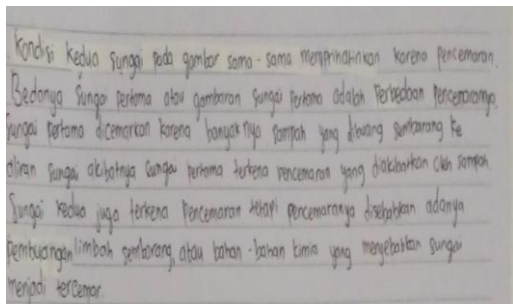 Kondisi kedua sungai pada gambar sama-sama memprihatinkan karena pencemaran.
Bedanya sungai pertama atau gambaran sungai pertama adalah Perbedaan Pencemarannya.
Sungai pertama dicemarkan karena banyaknya sampah yang dibuang sembarang ke
aliran sungai akibatnya sungai pertama terkena pencemaran yang diakibatkan oleh sampah.
Sungai kedua juga terkena Pencemaran tetapi pencemaranya disebabkan adanya
pembuangan limbah sembarang, atau bahan-bahan kimia yang mengebabkan sungai
menjadi tercemar.